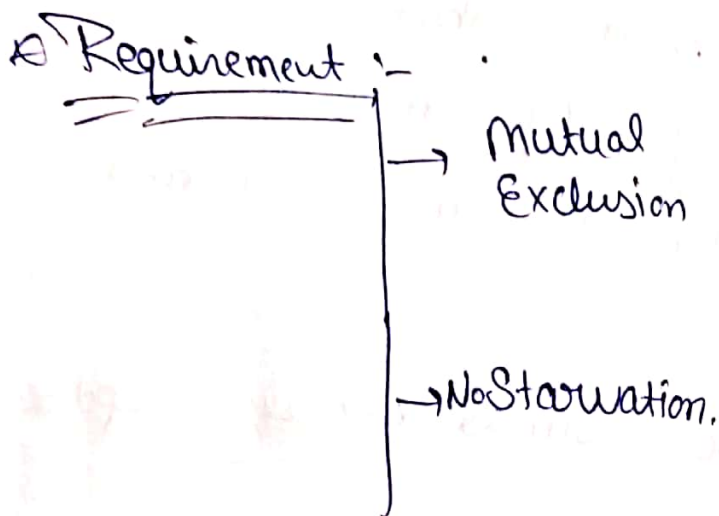 Requirement :-
→ Mutual
Exclusion
→ No Starvation.